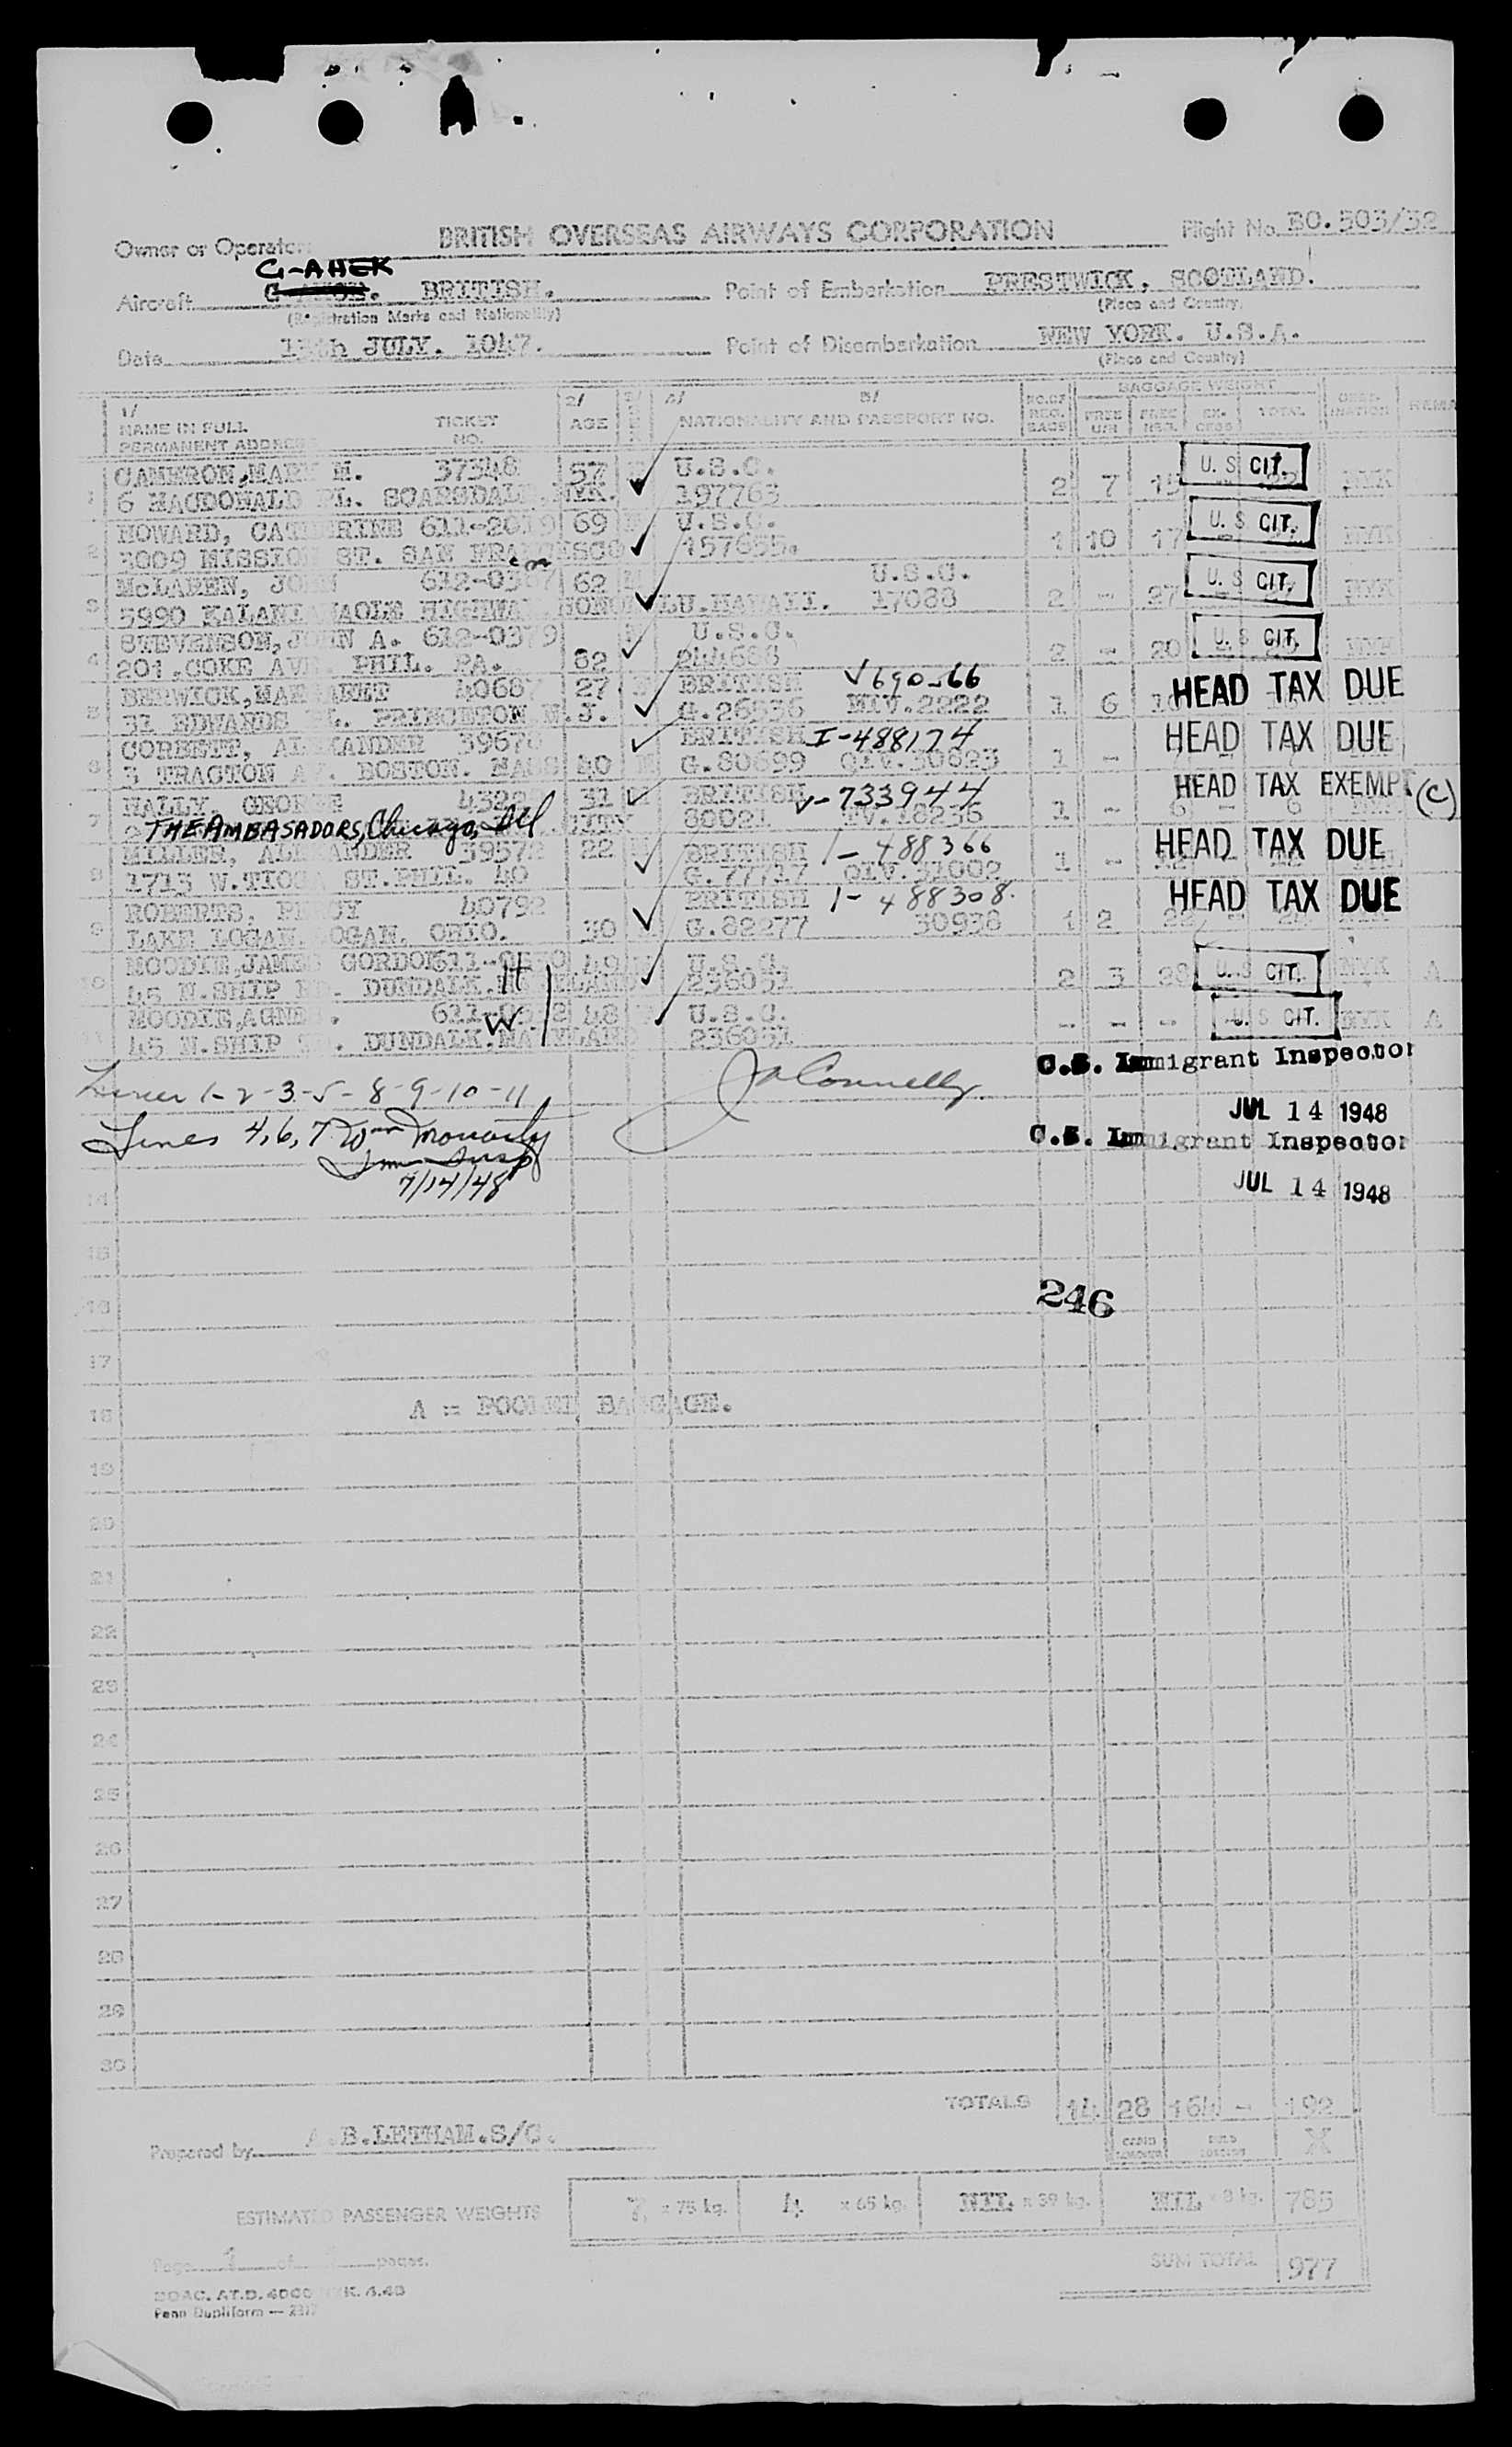 Owner or Operator BRITISH OVERSEAS AIRWAYS CORPORATION Flight No. BO.503/32
G-AHEK
Aircraft BRITISH. Point of Embarkation PRESTWICK, SCOTLAND.
(Registration Marks and Nationality) (Place and Country)
Date JULY. 1947. Point of Disembarkation NEW YORK. U.S.A.
(Place and Country)
1/ 2/ 3/ 4/ 5/ BAGGAGE WEIGHT
NAME IN FULL TICKET AGE NATIONALITY AND PASSPORT NO. NO.OF REG. BAGS FREE FREE EX-CESS TOTAL DEST-INATION REMA
PERMANENT ADDRESS NO.
1 CAMERON,MARY M. 37348 57 U.S.C. U.S. CIT.
6 MACDONALD PL. SCARSDALE.NYK. 197763 2 7 15 NYK
2 HOWARD, CATHERINE 611- 69 U.S.C. U.S. CIT.
3009 MISSION ST. SAN FRANCISCO 157655. 1 10 17 NYK
3 McLAREN, JOHN 612- 62 U.S.C. U.S. CIT.
5990 KALANIANAOLE HIGHWAY HONOLULU.HAWAII. 17088 2 - 27 NYK
4 STEVENSON,JOHN A. 612-0379 U.S.C. U.S. CIT.
201.COKE AVE. PHIL. PA. 62 244688 2 - 20 NYK
5 BERWICK,MARGARET 40687 27 BRITISH V690566 HEAD TAX DUE
31 EDWARDS PL. PRINCETON N.J. G.26536 NIV.2222 1 6
6 CORBETT, ALEXANDER 3967 BRITISH I-488174 HEAD TAX DUE
3 TRACTON AV. BOSTON. MASS 40 M G.80699 QIV.30623 1 -
7 NALLY, GEORGE 31 M BRITISH V-733944 HEAD TAX EXEMPT (C)
THE AMBASADORS, Chicago, Ill CITY 80021 TV.18236 1 - 6 - 6
8 MILLER, ALEXANDER 39572 22 BRITISH I-488366 HEAD TAX DUE
1713 W.TIOGA ST.PHIL. 40 G.77717 QIV.31002 1 -
9 ROBERTS, PERCY 40792 BRITISH I-488308. HEAD TAX DUE
LAKE LOGAN. LOGAN. OHIO. 30 G.82277 30938 1 2 22
10 MOODIE,JAMES GORDON 611- 49 U.S.C. U.S. CIT.
45 N.SHIP RD. DUNDALK.MARYLAND H 236051 2 3 28 NYK A
11 MOODIE,AGNES. 611- 48 U.S.C. U.S. CIT.
45 N.SHIP RD. DUNDALK.MARYLAND W 236051 - - - NYK A
U.S. Immigrant Inspector
Lines 1-2-3-5-8-9-10-11 J Connelly
JUL 14 1948
Lines 4,6,7 Wm Moriarty U.S. Immigrant Inspector
Imm Insp
7/14/48 JUL 14 1948
14
15
246
16
17
18 A = POOLED BAGGAGE.
19
20
21
22
23
24
25
26
27
28
29
30
TOTALS 14 28 164 - 192
Prepared by A.B.LETHAM.S/C. X
ESTIMATED PASSENGER WEIGHTS 7. x 75 kg. 4. x 65 kg. NIL. x 39 kg. NIL x 8 kg. 785
Page 1 of pages.
SUM TOTAL 977
BOAC. AT.D. 4.48
Penn Dupliform —